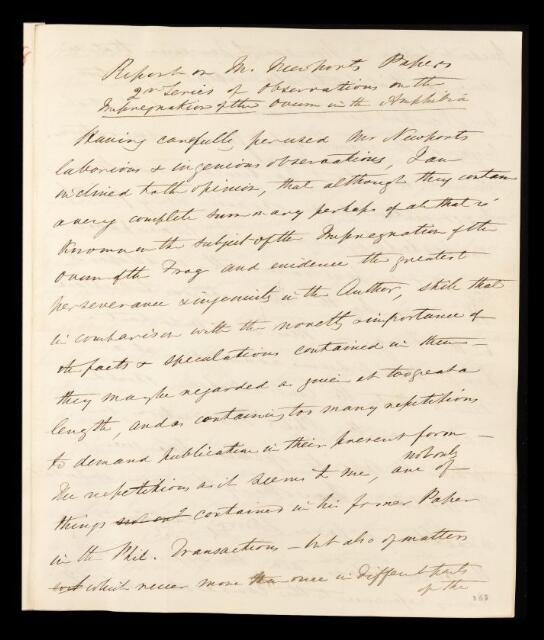 Report on Mr. Newports Papers
2nd Series of Observations on the
Impregnation of the Ovum in the Amphibia
Having carefully perused Mr Newports
laborious & ingenious observations, I am
inclined to the opinion, that although they contain
a very complete summary perhaps of all that is
Known on the subject of the Impregnation of the
Ovum of the Frog and evidence the greatest
perseverance & ingenuity in the Author, still that
in comparison with the novelty & importance of
the facts & speculations contained in them —
they may be regarded as given at too great a
length, and as containing too many repetitions
to demand publication in their present form —
The repetitions as it seems to me, are not only of
things contained in his former Paper
in the Phil. Transactions — but also of matters
which recur more than once in different parts
of the